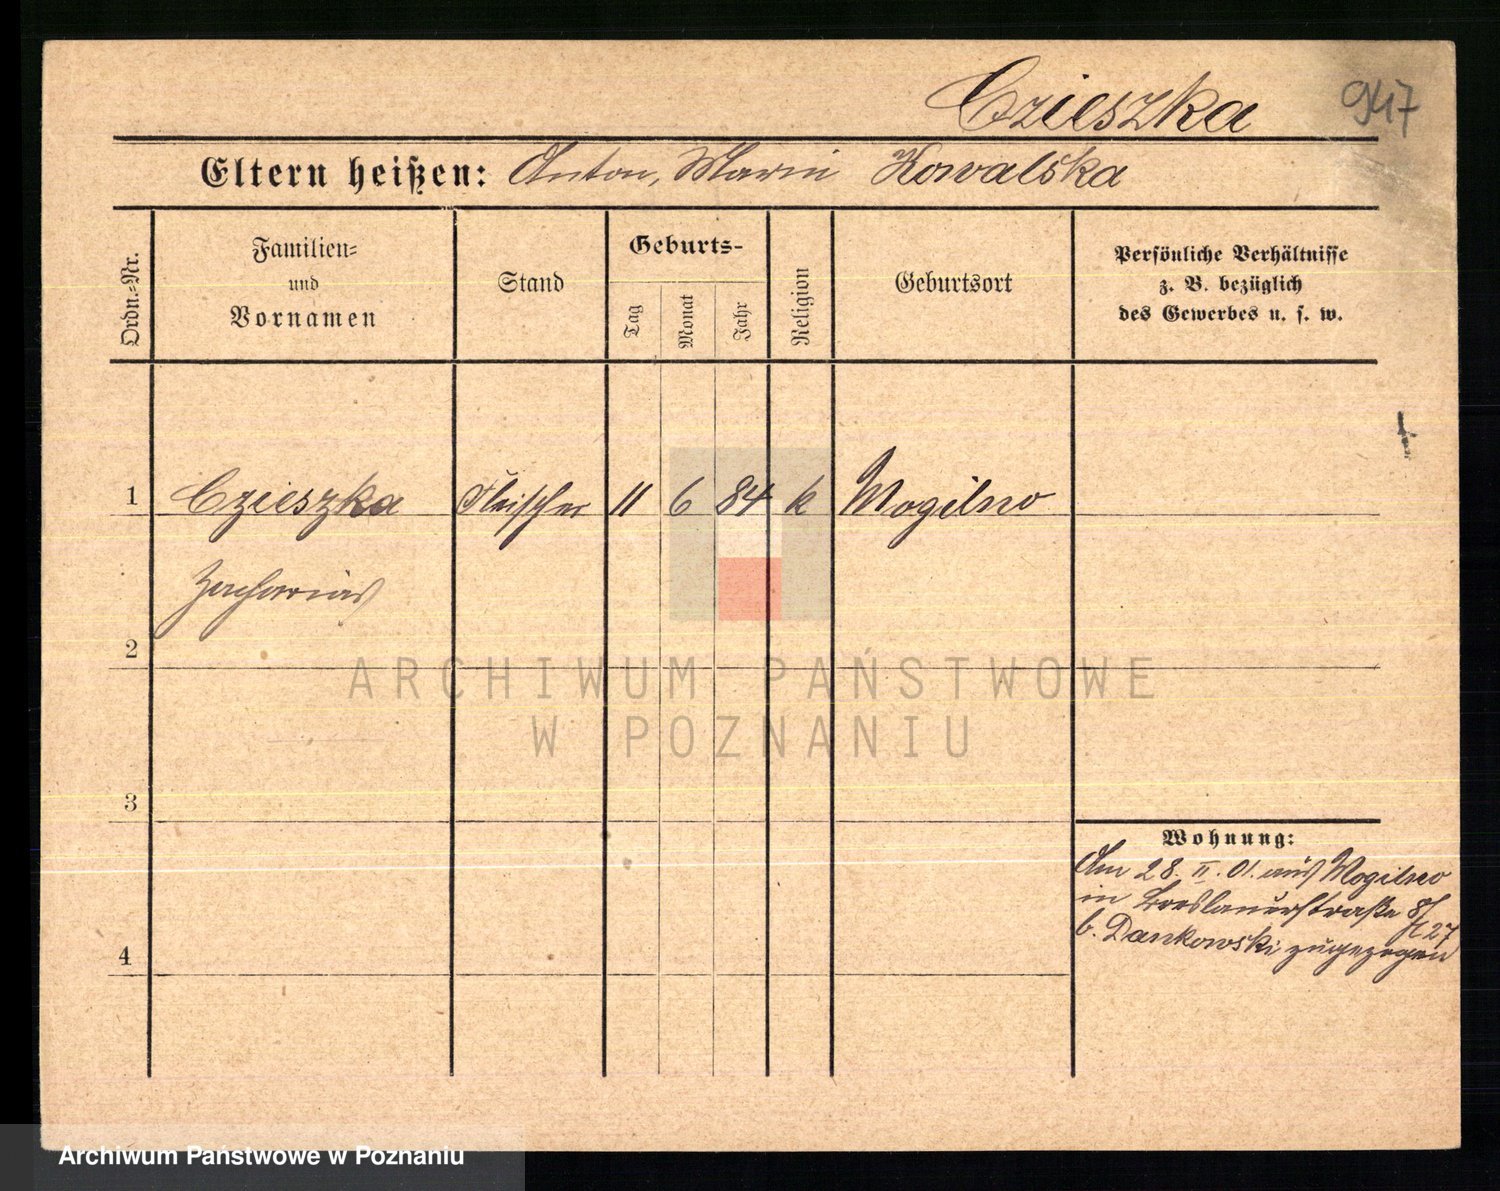 Czieszka 947
Eltern heißen: Anton, Marie Kowalska
Ordn.-Nr.
Familien-
und
Vornamen
Stand
Geburts-
Tag
Monat
Jahr
Religion
Geburtsort
Persönliche Verhältnisse
z. B. bezüglich
des Gewerbes u. s. w.
1 Czieszka Fleischer 11 6 84 k Mogilno
Zacharias
2
3
4
Wohnung:
Am 28. II. 01. aus Mogilno
in Breslauerstraße 8/
b. Dankowski zugezogen
ARCHIWUM PAŃSTWOWE
W POZNANIU
Archiwum Państwowe w Poznaniu